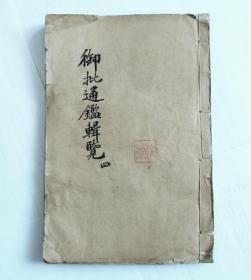 御批通鑑輯覽 四